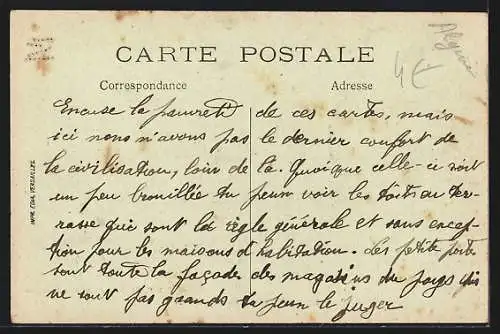 Algérie
4€
CARTE POSTALE
Correspondance Adresse
Excuse la pauvreté de ces cartes, mais
ici nous n'avons pas le dernier confort de
la civilisation, loin de là. Quoique celle-ci soit
un peu brouillée tu peux voir les toits ou ter-
rasse qui sont la règle générale et sans excep-
tion pour les maisons d'habitation. Les petite porte
sont toute la façade des magasins du pays qui
ne sont pas grands tu peux le juger
IMP. EDIA. VERSAILLES